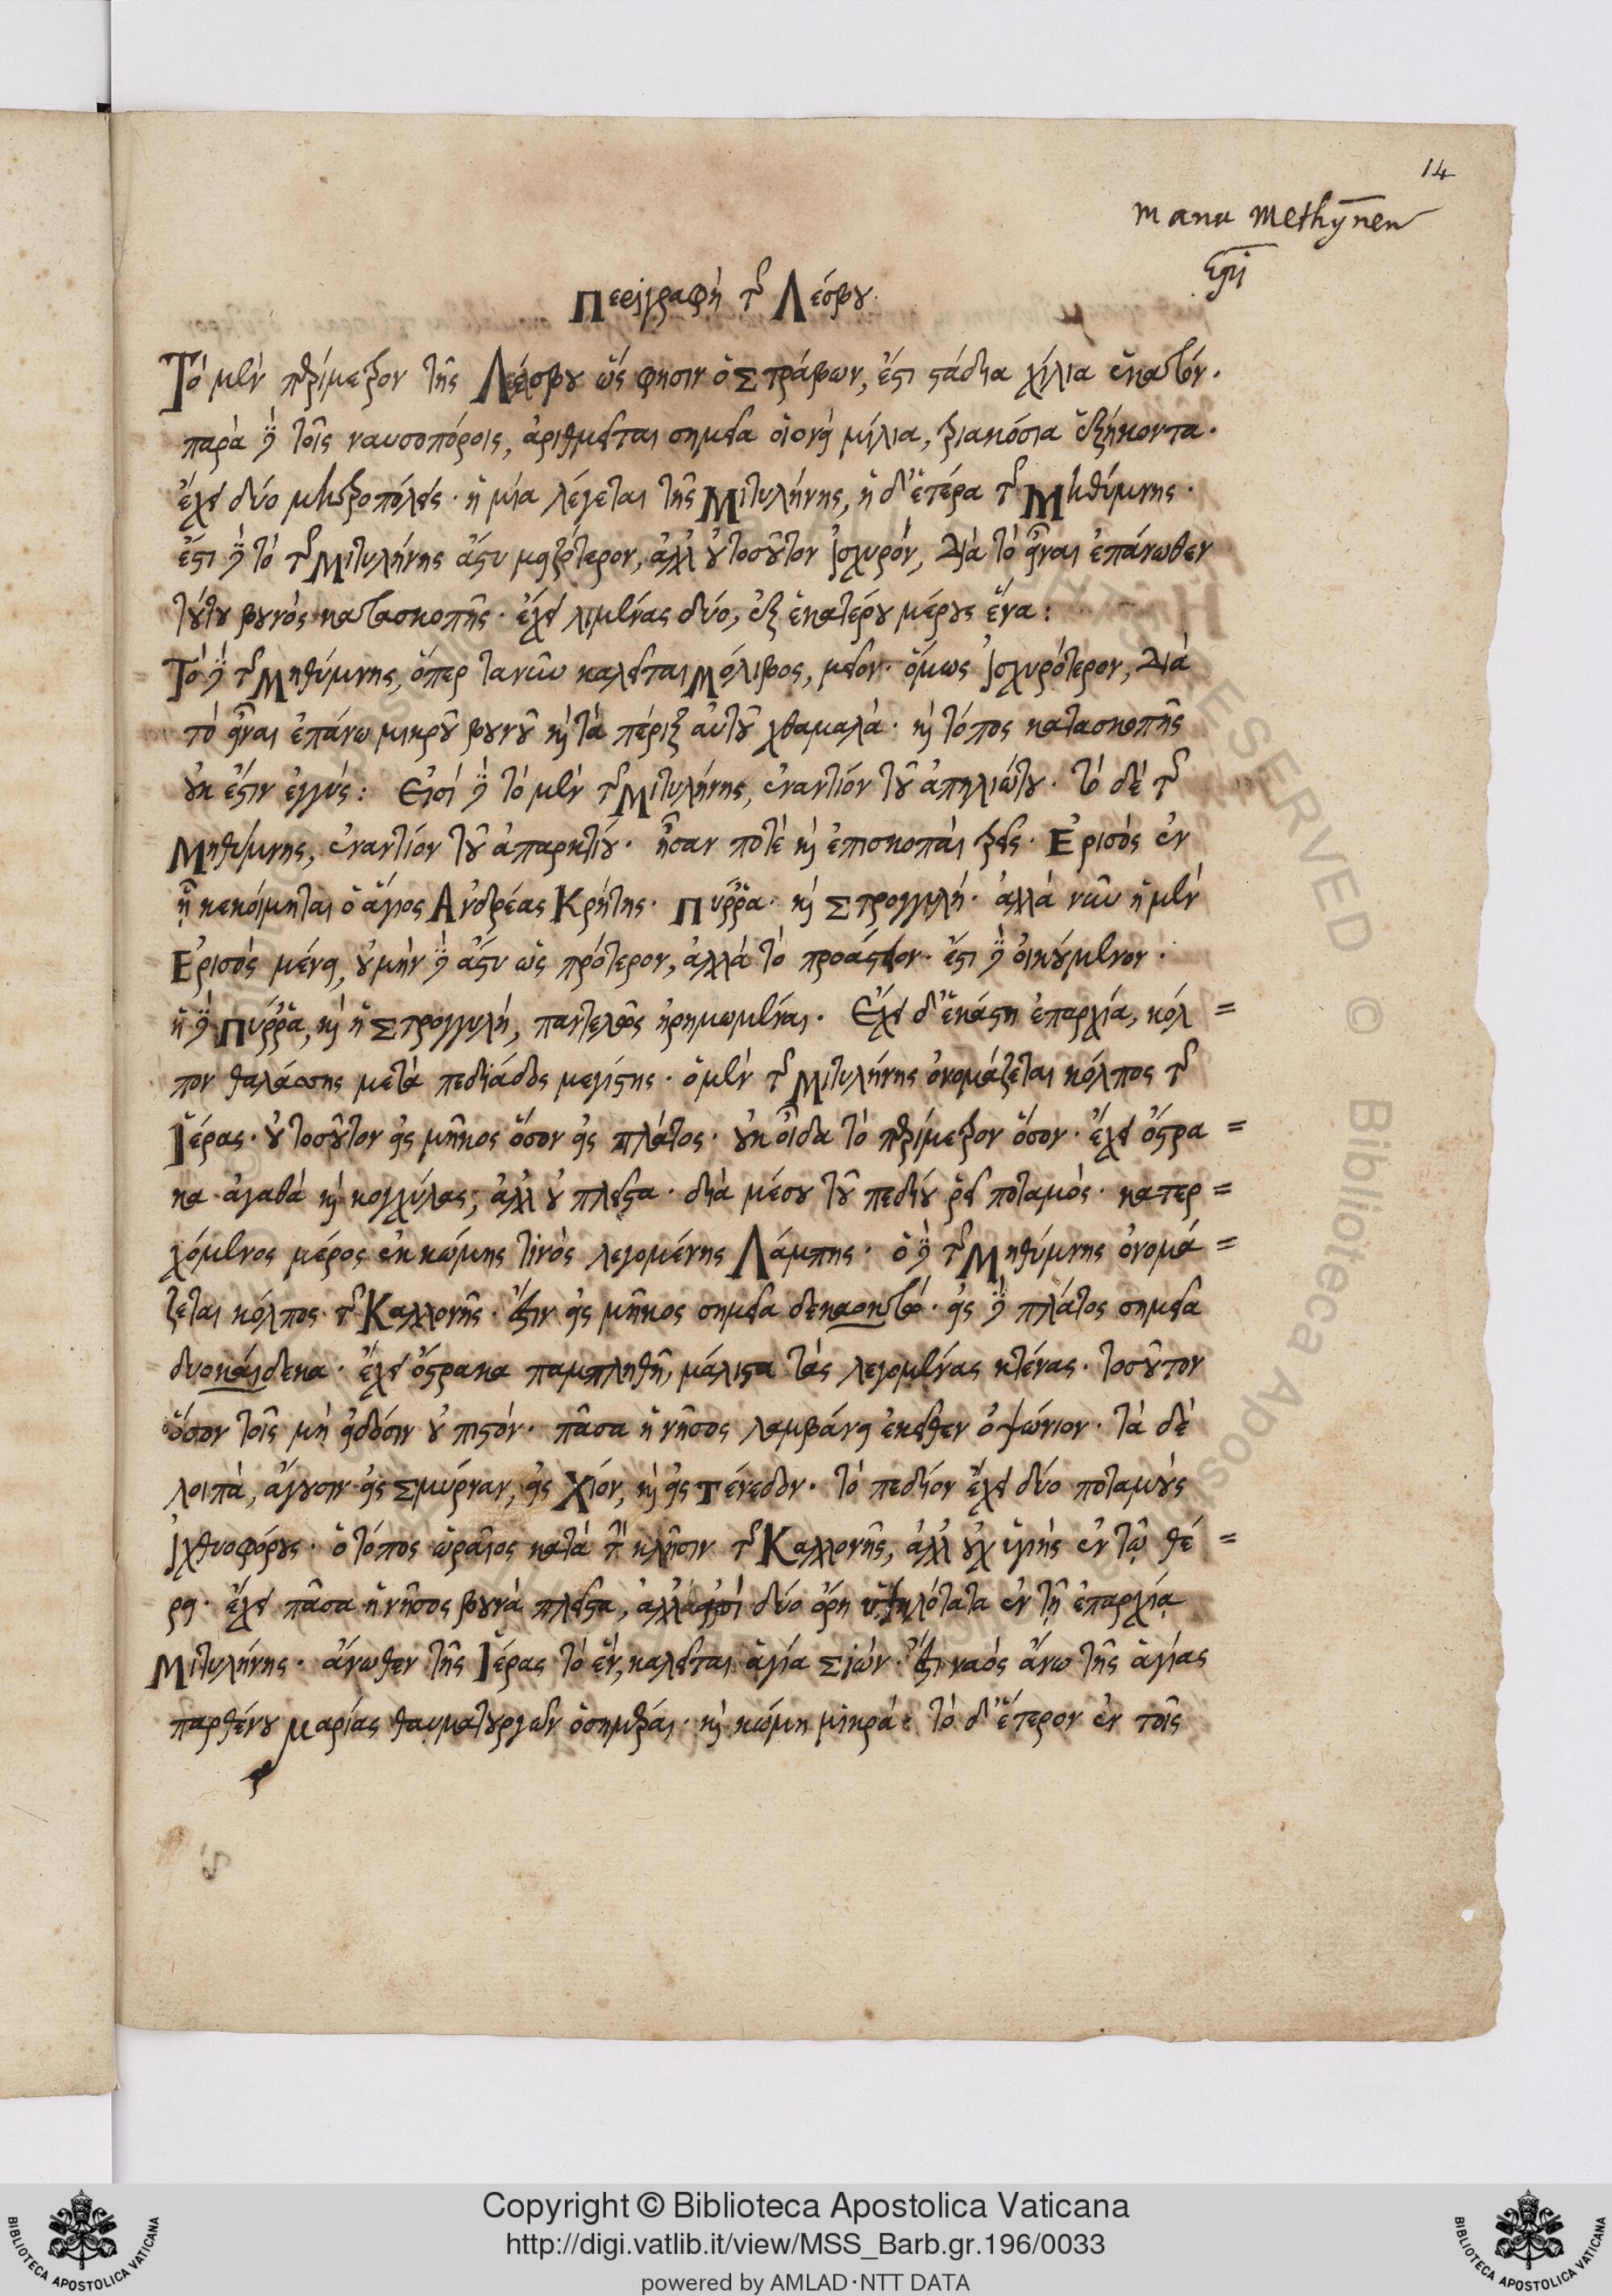 14
manu Methymnen
Epi
Περιγραφὴ τῆς Λέσβου.
Τὸ μὲν περίμετρον τῆς Λέσβου ὥς φησιν ὁ Στράβων, ἔστι στάδια χίλια ἑκατόν.
παρὰ δὲ τοῖς ναυσοπόροις, ἀριθμεῖται σημεῖα οἱονεὶ μίλια, τριακόσια ἑξήκοντα.
ἔχει δύο μητροπόλεις. ἡ μία λέγεται τῆς Μιτυλήνης, ἡ δ' ἑτέρα τῆς Μηθύμνης.
ἔστι δὲ τὸ τῆς Μιτυλήνης ἄστυ μειζότερον, ἀλλ' οὐ τοσοῦτον ἰσχυρόν, διὰ τὸ εἶναι ἐπάνωθεν
τούτου βουνὸς κατασκοπῆς. ἔχει λιμένας δύο, ἐξ ἑκατέρου μέρους ἕνα:
Τὸ δὲ τῆς Μηθύμνης, ὅπερ τανῦν καλεῖται Μόλιβος, μεῖον. ὅμως ἰσχυρότερον, διὰ
τὸ εἶναι ἐπάνω μικροῦ βουνοῦ καὶ τὰ πέριξ αὐτοῦ χθαμαλά. καὶ τόπος κατασκοπῆς
οὐκ ἔστιν ἐγγύς: Εἰσὶ δὲ τὸ μὲν τῆς Μιτυλήνης, ἐναντίον τοῦ ἀπηλιώτου. τὸ δὲ τῆς
Μηθύμνης, ἐναντίον τοῦ ἀπαρκτίου. ἦσαν ποτὲ καὶ ἐπισκοπαὶ τρεῖς. Ἐρισὸς ἐν
ᾗ κεκοίμηται ὁ ἅγιος Ἀνδρέας Κρήτης. Πύῤῥα. καὶ Στρογγυλή. ἀλλὰ νῦν ἡ μὲν
Ἐρισὸς μένει, οὐ μὴν δὲ ἄστυ ὡς πρότερον, ἀλλὰ τὸ προάστειον. ἔστι δὲ οἰκούμενον.
ἡ δὲ Πύῤῥα, καὶ ἡ Στρογγυλή, παντελῶς ἠρημωμέναι. Ἔχει δ' ἑκάστη ἐπαρχία, κόλ=
πον θαλάσσης μετὰ πεδιάδος μεγίστης. ὁ μὲν τῆς Μιτυλήνης ὀνομάζεται κόλπος τῆς
Ἱέρας. οὐ τοσοῦτον εἰς μῆκος ὅσον εἰς πλάτος. οὐκ οἶδα τὸ περίμετρον ὅσον. ἔχει ὄστρα=
κα ἀγαθὰ καὶ κογχύλας, ἀλλ' οὐ πλεῖστα. διὰ μέσου τοῦ πεδίου ῥεῖ ποταμός. κατερ=
χόμενος μέρος ἐκ κώμης τινὸς λεγομένης Λάμπης. ὁ δὲ τῆς Μηθύμνης ὀνομά=
ζεται κόλπος τῆς Καλλονῆς. ἔστιν εἰς μῆκος σημεῖα δεκαοκτώ. εἰς δὲ πλάτος σημεῖα
δυοκαίδεκα. ἔχει ὄστρακα παμπληθῆ, μάλιστα τὰς λεγομένας κτένας. τοσοῦτον
ὅσον τοῖς μὴ εἰδόσιν οὐ πιστόν. πᾶσα ἡ νῆσος λαμβάνει ἐκεῖθεν ὀψώνιον. τὰ δὲ
λοιπὰ, ἄγουσιν εἰς Σμύρναν, εἰς Χίον, καὶ εἰς Τένεδον. τὸ πεδίον ἔχει δύο ποταμοὺς
ἰχθυοφόρους. ὁ τόπος ὡραῖος κατὰ τὴν κλῆσιν τῆς Καλλονῆς, ἀλλ' οὐχ ὑγιὴς ἐν τῷ θέ=
ρει. ἔχει πᾶσα ἡ νῆσος βουνὰ πλεῖστα, ἀλλὰ εἰσὶ δύο ὄρη ὑψηλότατα ἐν τῇ ἐπαρχίᾳ
Μιτυλήνης. ἄνωθεν τῆς Ἱέρας τὸ ἕν, καλεῖται ἁγία Σιών. ἔστι ναὸς ἄνω τῆς ἁγίας
παρθένου Μαρίας θαυματουργῶν ὁσημέραι. καὶ κώμη μικρά: τὸ δ' ἕτερον ἐν τοῖς
Copyright © Biblioteca Apostolica Vaticana
http://digi.vatlib.it/view/MSS_Barb.gr.196/0033
powered by AMLAD·NTT DATA
BIBLIOTECA APOSTOLICA VATICANA
BIBLIOTECA APOSTOLICA VATICANA